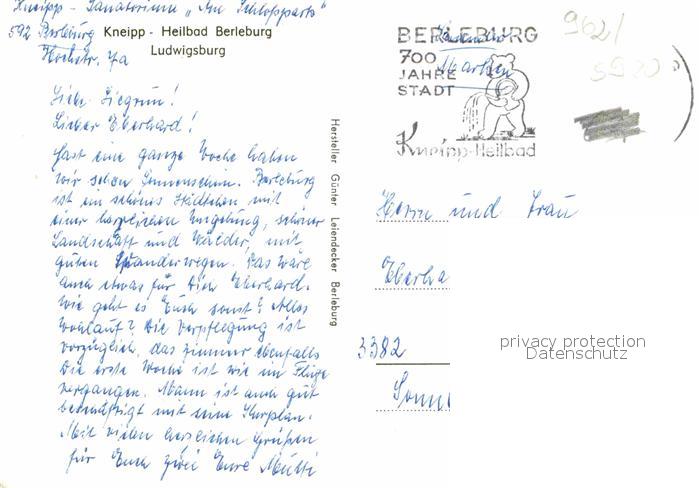 Kneipp - Sanatorium "Am Schlosspark"
592 Berleburg
Hochstr. 7a
Kneipp - Heilbad Berleburg
Ludwigsburg
Liebe Siegrun!
Lieber Eberhard!
Fast eine ganze Woche haben
wir schon Sonnenschein. Berleburg
ist ein schönes Städtchen mit
einer herrlichen Umgebung, schöner
Landschaft und Wälder, mit
guten Wanderwegen. Das wäre
auch etwas für Dich Eberhard.
Wie geht es Euch sonst? Alles
wohlauf? Die Verpflegung ist
vorzüglich, das Zimmer ebenfalls
Die erste Woche ist wie im Fluge
vergangen. Mann ist auch gut
beschäftigt mit sein Kurplan.
Mit vielen herzlichen Grüßen
für Euch zwei Eure Mutti
Hersteller Günter Leiendecker Berleburg
BERLEBURG
700
JAHRE
STADT
Kneipp-Heilbad
Marken
962/
5920
Herrn und Frau
Eberha
3382
Sonn
privacy protection
Datenschutz